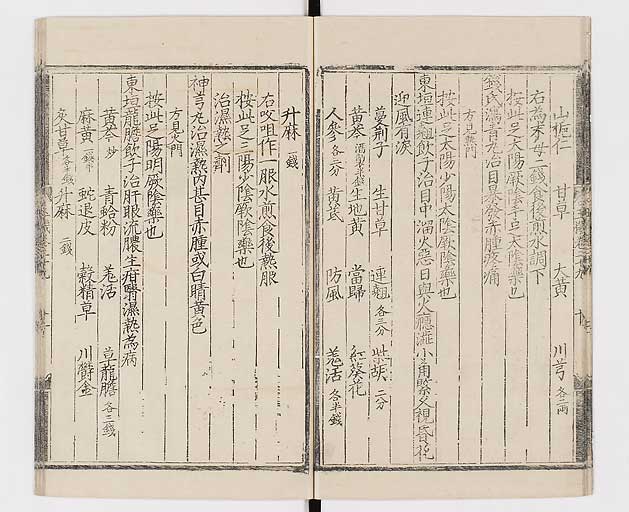 山梔仁 甘草 大黃 川芎各二兩
右為末每二錢食後煎水調下
按此足太陽厥陰手足太陰藥也
錢氏瀉青丸治目暴發赤腫疼痛
方見熱門
按此足太陽少陽太陰厥陰藥也
東垣連翹飲子治目中溜火惡日與火隱澁小角緊久視昏花
迎風有淚
蔓荊子 生甘草 連翹各三分 柴胡二分
黃芩酒 生地黃 當歸 紅葵花
人參各三分 黃芪 防風 羗活各半錢
升麻一錢
右㕮咀作一服水煎食後熱服
按此足三陽少陰厥陰藥也
治濕熱之劑
神芎丸治濕熱內甚目赤腫或白睛黃色
方見火門
按此足陽明厥陰藥也
東垣龍膽飲子治肝眼流膿生疳瞖濕熱為病
黃芩炒 青蛤粉 羗活 草龍膽各三錢
麻黃 蛇退皮 榖精草 川鬱金
炙甘草各半錢 升麻二錢